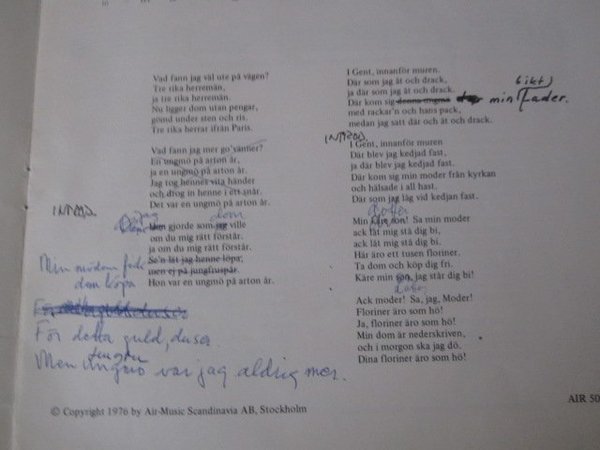 Vad fann jag väl ute på vägen?
Tre rika herremän,
ja tre rika herremän.
Nu ligger dom utan pengar,
gömd under sten och ris.
Tre rika herrar ifrån Paris.
Vad fann jag mer go'vänner?
En ungmö på arton år,
ja en ungmö på arton år.
Jag tog hennes vita händer
och drog in henne i ett snår.
Det var en ungmö på arton år.
INTROD.
jag
dom
Hon gjorde som jag ville
om du mig rätt förstår.
ja om du mig rätt förstår.
Se'n lät jag henne löpa,
men ej på jungfruspår.
Hon var en ungmö på arton år.
Min mödom fick
dom köpa
För detta guld, dusör
tungan
Men ungmö var jag aldrig mer.
I Gent, innanför muren.
Där som jag åt och drack,
ja där som jag åt och drack.
Där kom sig denna ungma min Fader.
bikt
med rackar'n och hans pack,
medan jag satt där och åt och drack.
INTROD.
I Gent, innanför muren
Där blev jag kedjad fast,
ja där blev jag kedjad fast.
Där kom sig min moder från kyrkan
och hälsade i all hast.
Där som jag låg vid kedjan fast.
dotter
Min käre son! Sa min moder
ack låt mig stå dig bi,
ack låt mig stå dig bi.
Här äro ett tusen floriner.
Ta dom och köp dig fri.
Käre min son, jag står dig bi!
dotter
Ack moder! Sa, jag, Moder!
Floriner äro som hö!
Ja, floriner äro som hö!
Min dom är nederskriven,
och i morgon ska jag dö.
Dina floriner äro som hö!
© Copyright 1976 by Air-Music Scandinavia AB, Stockholm
AIR 50